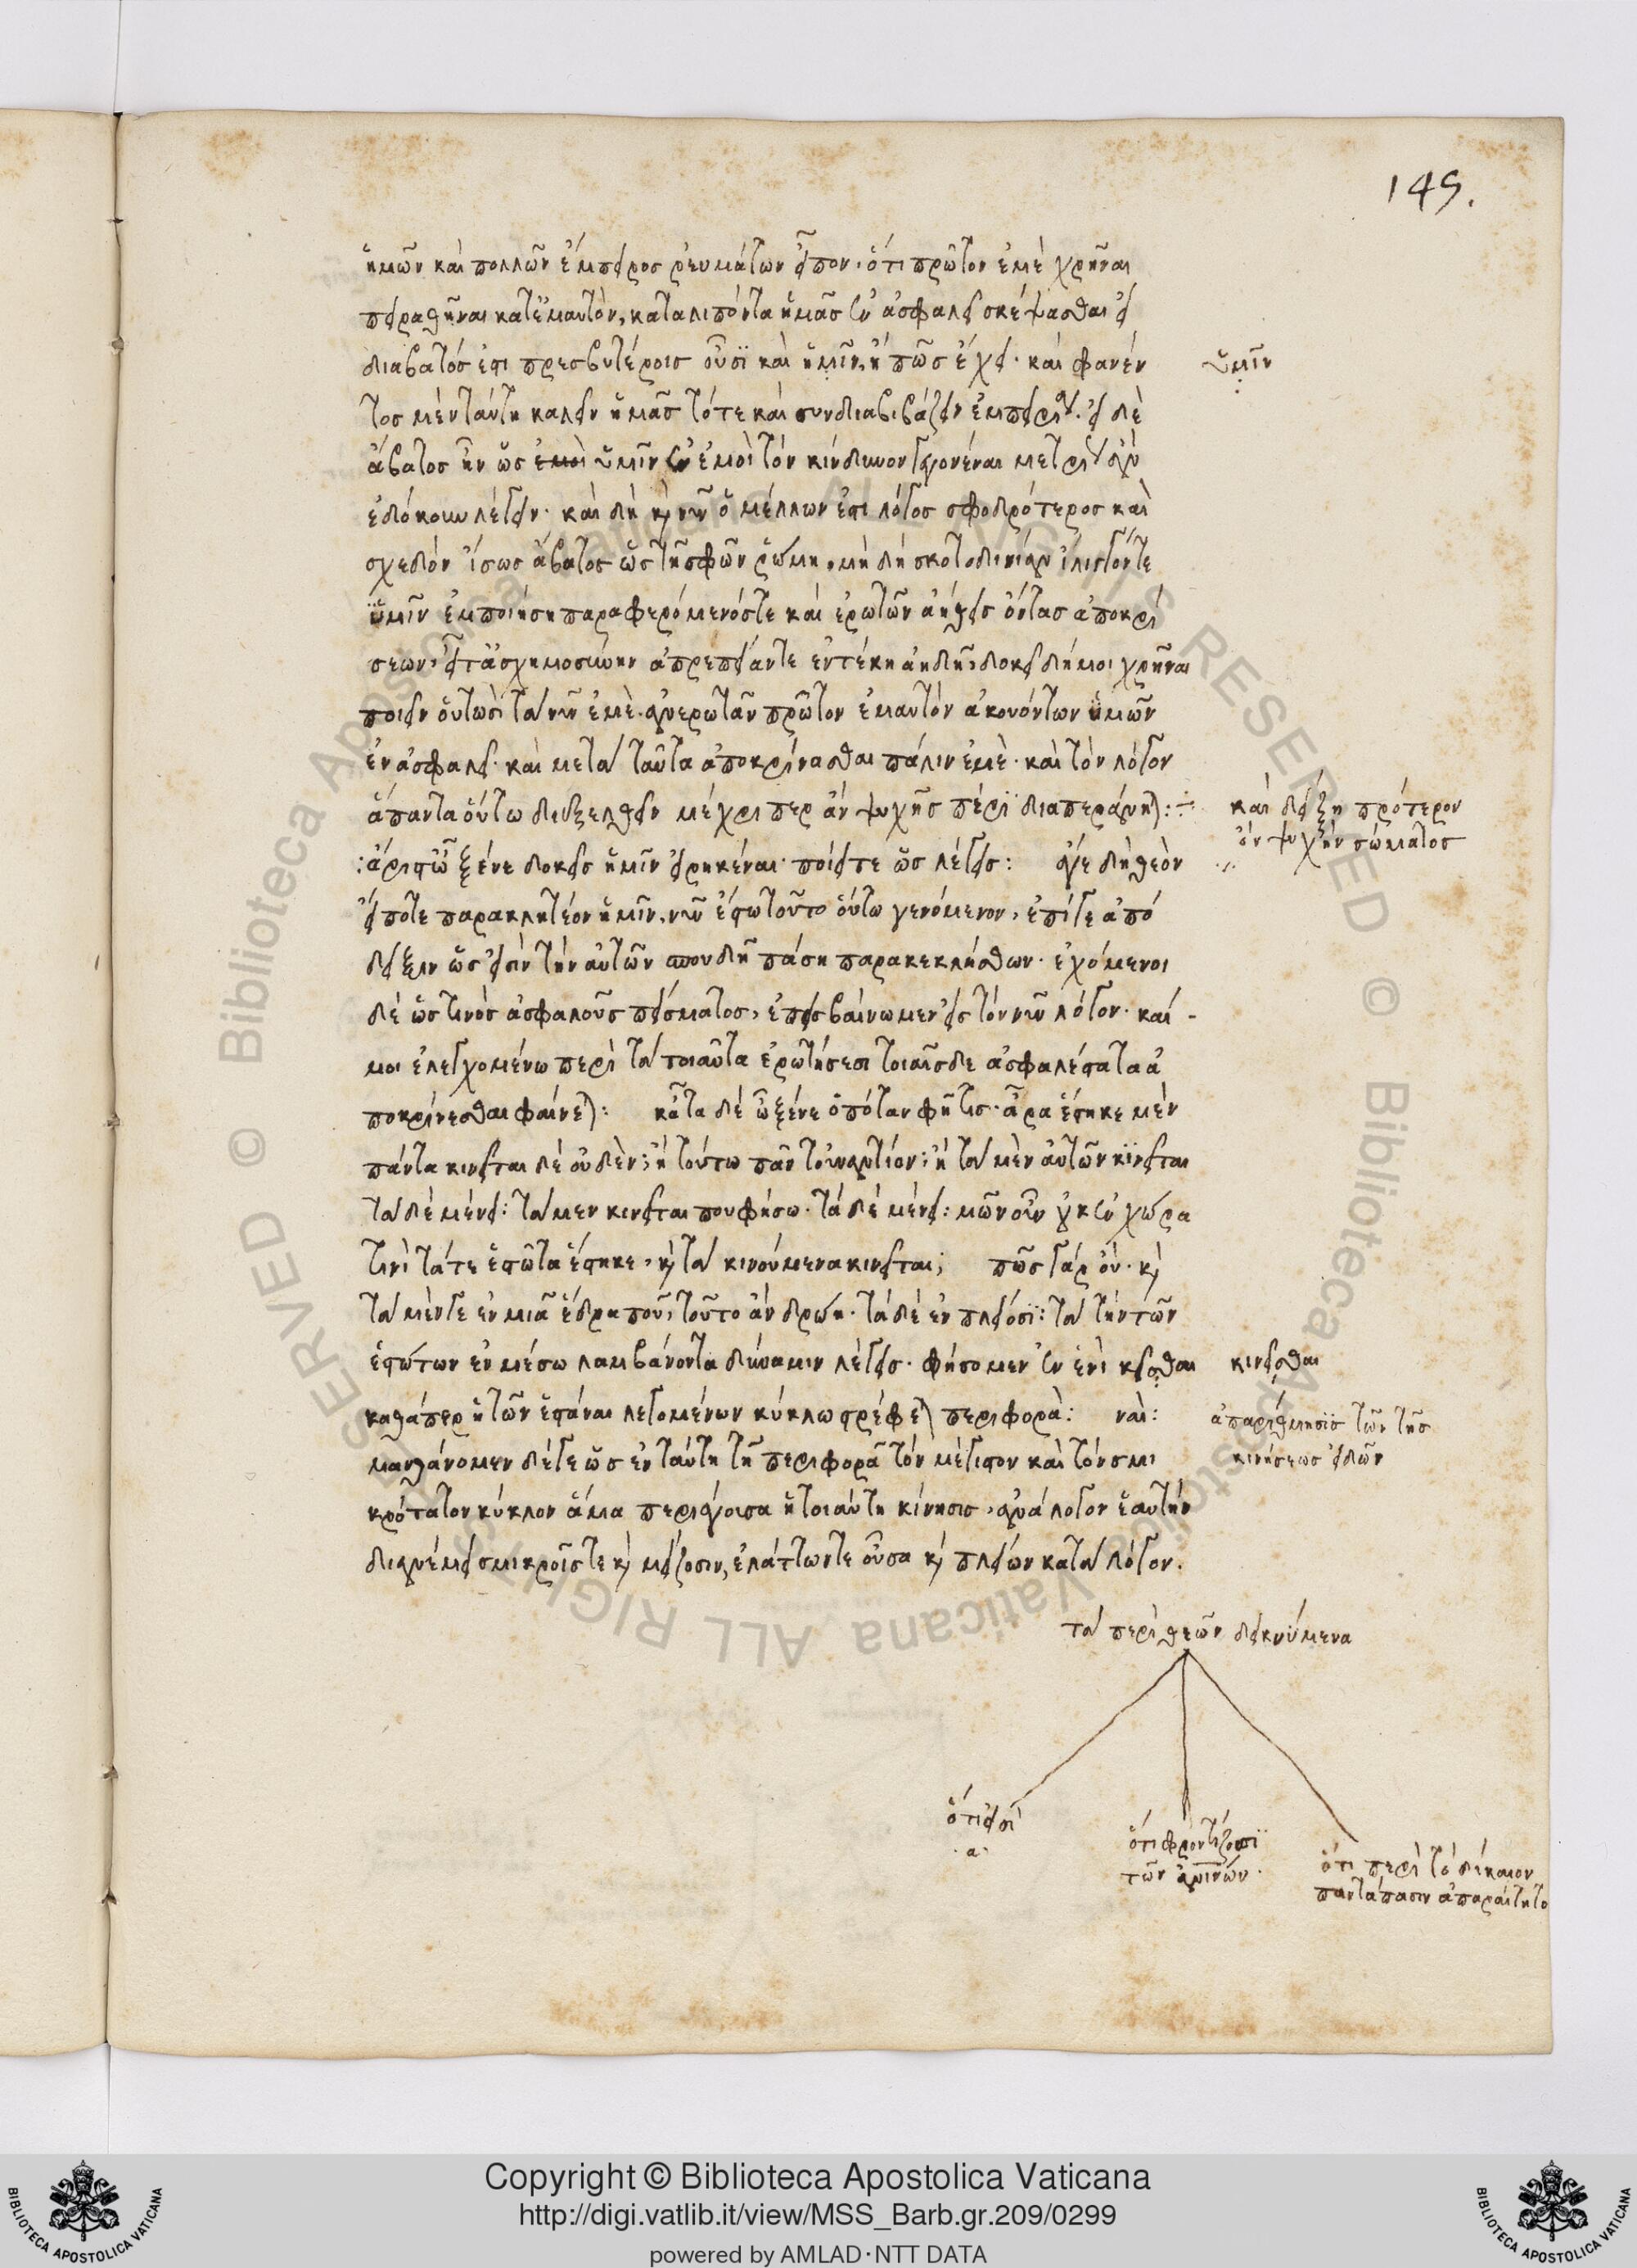 149.
ἡμῶν καὶ πολλῶν ἔμπειρος ῥευμάτων εἶπον· ὅτι πρῶτον ἐμὲ χρῆναι
πειραθῆναι κατ' ἐμαυτὸν, καταλιπόντα ἡμᾶς ἐν ἀσφαλεῖ σκέψασθαι εἰ
διαβατός ἐστι πρεσβυτέροις οὖσϊ καὶ ἡμῖν, ἢ πῶς ἔχει· καὶ φανέν
ὑμῖν
τος μὲν ταύτη καλεῖν ἡμᾶς τότε καὶ συνδιαβιβάζειν ἐμπειρία. εἰ δὲ
ἄβατος ἦν ὡς ἐμοὶ ὑμῖν ἐν ἐμοὶ τὸν κίνδυνον γεγονέναι μετρίως ἂν
ἐδόκουν λέγειν· καὶ δὴ καὶ νῦν ὁ μέλλων ἐστι λόγος σφοδρότερος καὶ
σχεδόν ἴσως ἄβατος ὡς τῆ σφῶν ῥώμη, μὴ δὴ σκοτοδινίαν ἴλιγγόν τε
ὑμῖν ἐμποιήση παραφερόμενός τε καὶ ἐρωτῶν ἀήθεις ὄντας ἀποκρί
σεων, εἶτ' ἀσχημοσύνην ἀπρέπειάν τε ἐντέκη ἀηδῆ, δοκεῖ δή μοι χρῆναι
ποιεῖν οὑτωσὶ τὰ νῦν ἐμὲ· ἀνερωτᾶν πρῶτον ἐμαυτόν ἀκουόντων ὑμῶν
ἐν ἀσφαλεῖ· καὶ μετὰ ταῦτα ἀποκρίνασθαι πάλιν ἐμὲ· καὶ τὸν λόγον
ἅπαντα οὕτω διεξελθεῖν μέχρι περ ἂν ψυχῆς πέρϊ διαπεράνηται:÷
καὶ δείξη πρότερον
ὂν ψυχὴν σώματος
:ἄριστ' ὦ ξένε δοκεῖς ἡμῖν εἰρηκέναι· ποίει τε ὡς λέγεις: ἄγε δὴ θεὸν
εἴποτε παρακλητέον ἡμῖν, νῦν ἔστω τοῦτο οὕτω γενόμενον, ἐπί γε ἀπό
δειξιν ὡς εἰσὶν τὴν αὑτῶν σπουδῆ πάση παρακεκλήσθων· ἐχόμενοι
δέ ὥς τινός ἀσφαλοῦς πείσματος, ἐπεισβαίνωμεν εἰς τὸν νῦν λόγον· καί -
μοι ἐλεγχομένω περὶ τὰ τοιαῦτα ἐρωτήσεσι τοιαῖσδε ἀσφαλέστατα ἀ
ποκρίνεσθαι φαίνεται: κᾆτα δέ ὦ ξένε ὁπόταν φῆ τις· ἆρα ἕστηκε μὲν
πάντα κινεῖται δέ οὐδὲν; ἢ τούτω πᾶν τοὐναντίον; ἢ τὰ μὲν αὐτῶν κϊνεῖται
τὰ δὲ μένει: τὰ μεν κινεῖται που φήσω· τὰ δὲ μένει: μῶν οὖν οὐκ ἐν χώρα
τινὶ τά τε ἑστῶτα ἕστηκε, καὶ τὰ κινούμενα κινεῖται; πῶς γάρ οὐ· καὶ
τὰ μέν γε ἐν μιᾶ ἕδρα ποῦ, τοῦτο ἂν δρώη· τὰ δὲ ἐν πλείοσϊ: τὰ τὴν τῶν
ἑστώτων ἐν μέσω λαμβάνοντα δύναμιν λέγεις· φήσομεν ἐν ἑνὶ κεῖσθαι
κινεῖσθαι
καθάπερ ἡ τῶν ἑστάναι λεγομένων κύκλω στρέφεται περιφορὰ: ναὶ:
ἀπαρίθμησϊς τῶν τῆς
κινήσεως εἰδῶν
μανθάνομεν δέ γε ὡς ἐν ταύτη τῆ περιφορᾶ τὸν μέγιστον καὶ τὸν σμι
κρότατον κύκλον ἅμα περιάγουσα ἡ τοιαύτη κίνησις, ἀνά λογον ἑαυτὴν
διανέμει σμικροῖς τε καὶ μείζοσιν, ἐλάττων τε οὖσα καὶ πλείων κατὰ λόγον.
τὰ περὶ θεῶν δεικνύμενα
ὅτι εἰσὶ
·α·
ὅτι φροντίζουσϊ
τῶν ἀνῑνων.
ὅτι περὶ τὸ δίκαιον
παντάπασιν ἀπαραίτητο
© Biblioteca Apostolica Vaticana ALL RIGHTS RESERVED
Copyright © Biblioteca Apostolica Vaticana
http://digi.vatlib.it/view/MSS_Barb.gr.209/0299
powered by AMLAD·NTT DATA
BIBLIOTECA APOSTOLICA VATICANA
BIBLIOTECA APOSTOLICA VATICANA